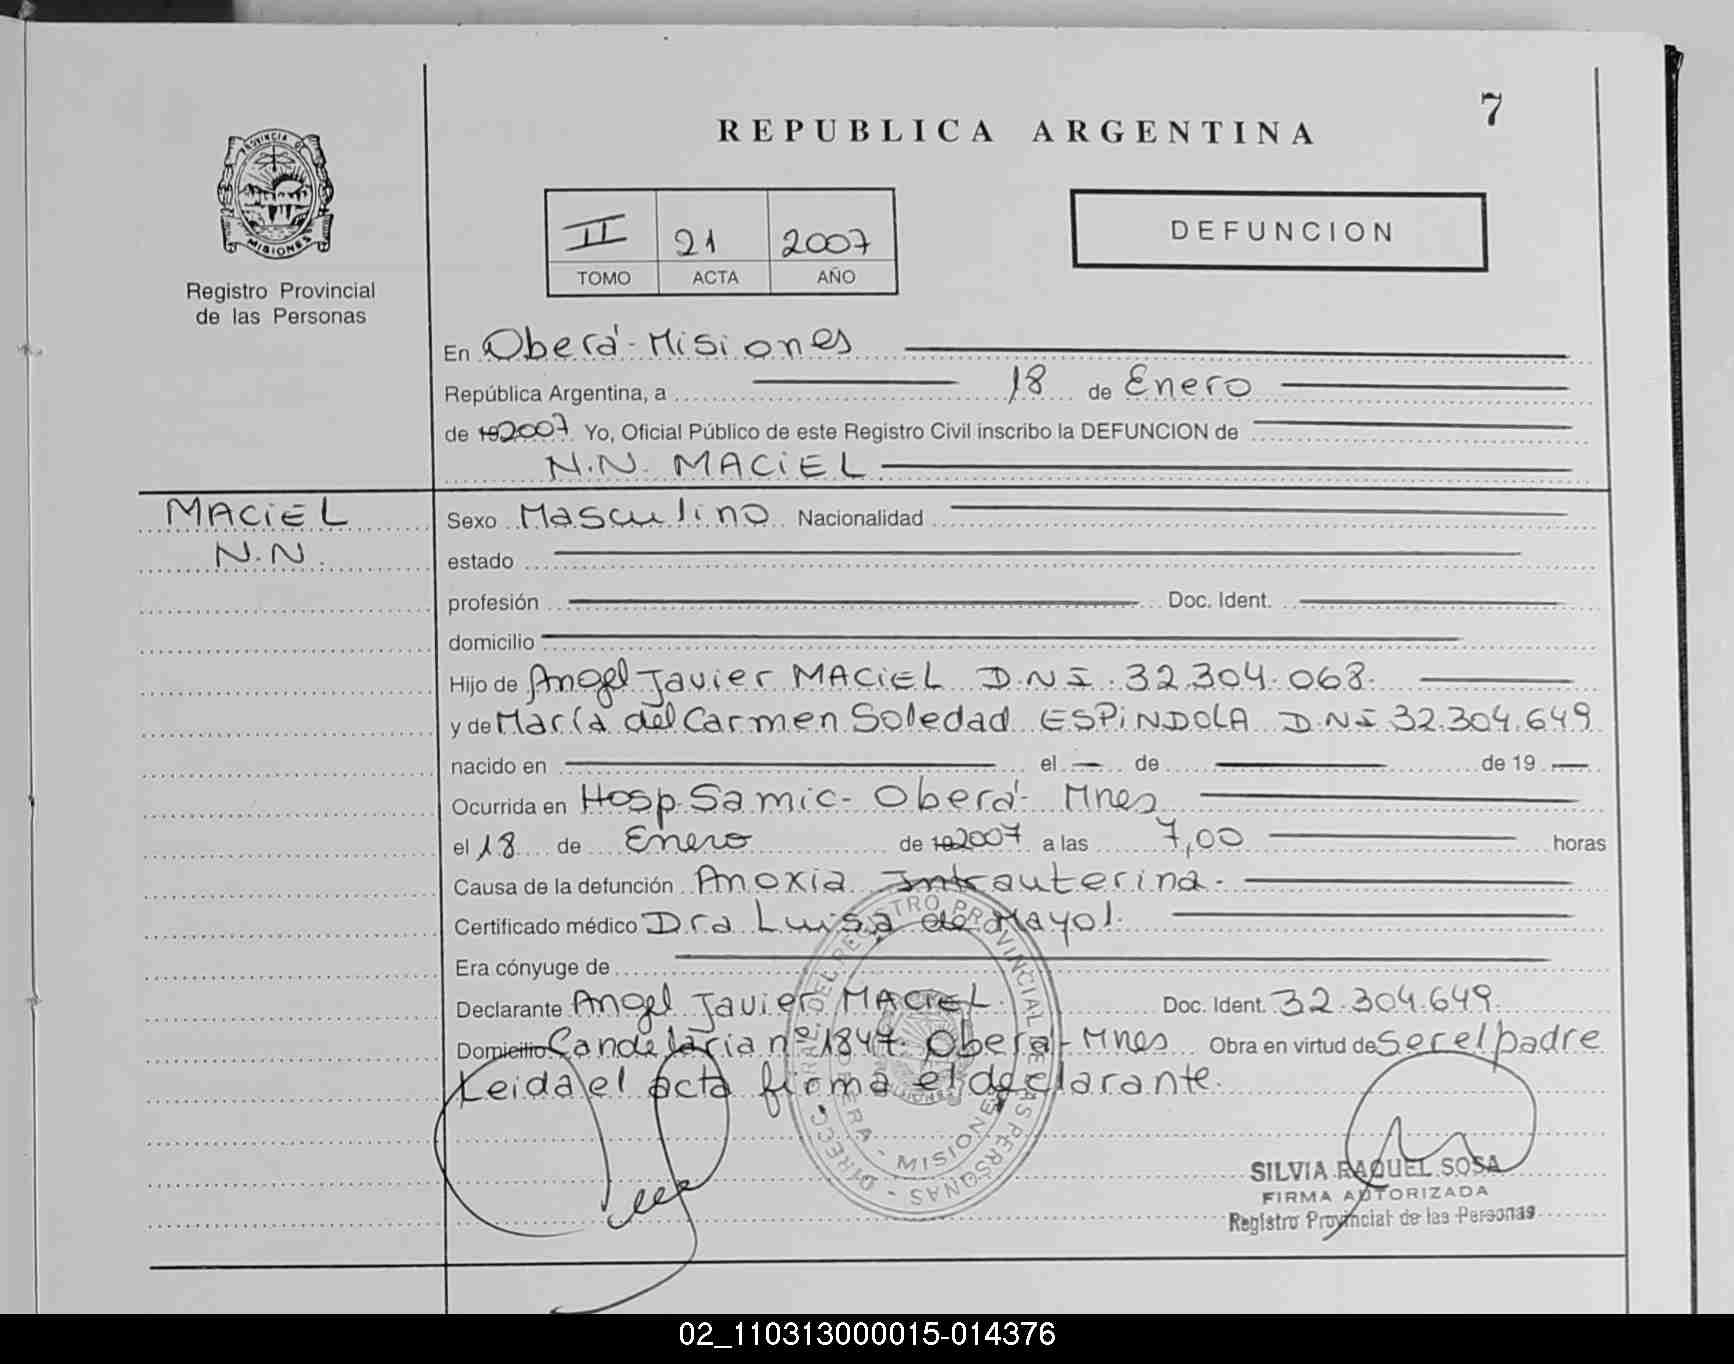 7
REPUBLICA ARGENTINA
PROVINCIA DE
MISIONES
Registro Provincial
de las Personas
II 21 2007
TOMO ACTA AÑO
DEFUNCION
En Oberá - Misiones
República Argentina, a 18 de Enero
de 19 2007 Yo, Oficial Público de este Registro Civil inscribo la DEFUNCION de
N.N. MACIEL
MACIEL
N.N.
Sexo Masculino Nacionalidad
estado
profesión Doc. Ident.
domicilio
Hijo de Angel Javier MACIEL D.N.I. 32.304.068.
y de María del Carmen Soledad ESPINDOLA D.N.I 32.304.649
nacido en el de de 19
Ocurrida en Hosp. Samic - Oberá - Mnes
el 18 de Enero de 19 2007 a las 7,00 horas
Causa de la defunción Anoxia Intrauterina.
Certificado médico Dra Luisa de Mayol.
Era cónyuge de
Declarante Angel Javier MACIEL. Doc. Ident. 32.304.649.
Domicilio Candelaria nº 1847. Obera - Mnes Obra en virtud de Ser el padre
Leida el acta firma el declarante.
DIRECC. GRAL. DEL REGISTRO PROVINCIAL DE LAS PERSONAS
OBERA - MISIONES
SILVIA RAQUEL SOSA
FIRMA AUTORIZADA
Registro Provincial de las Personas
02_110313000015-014376